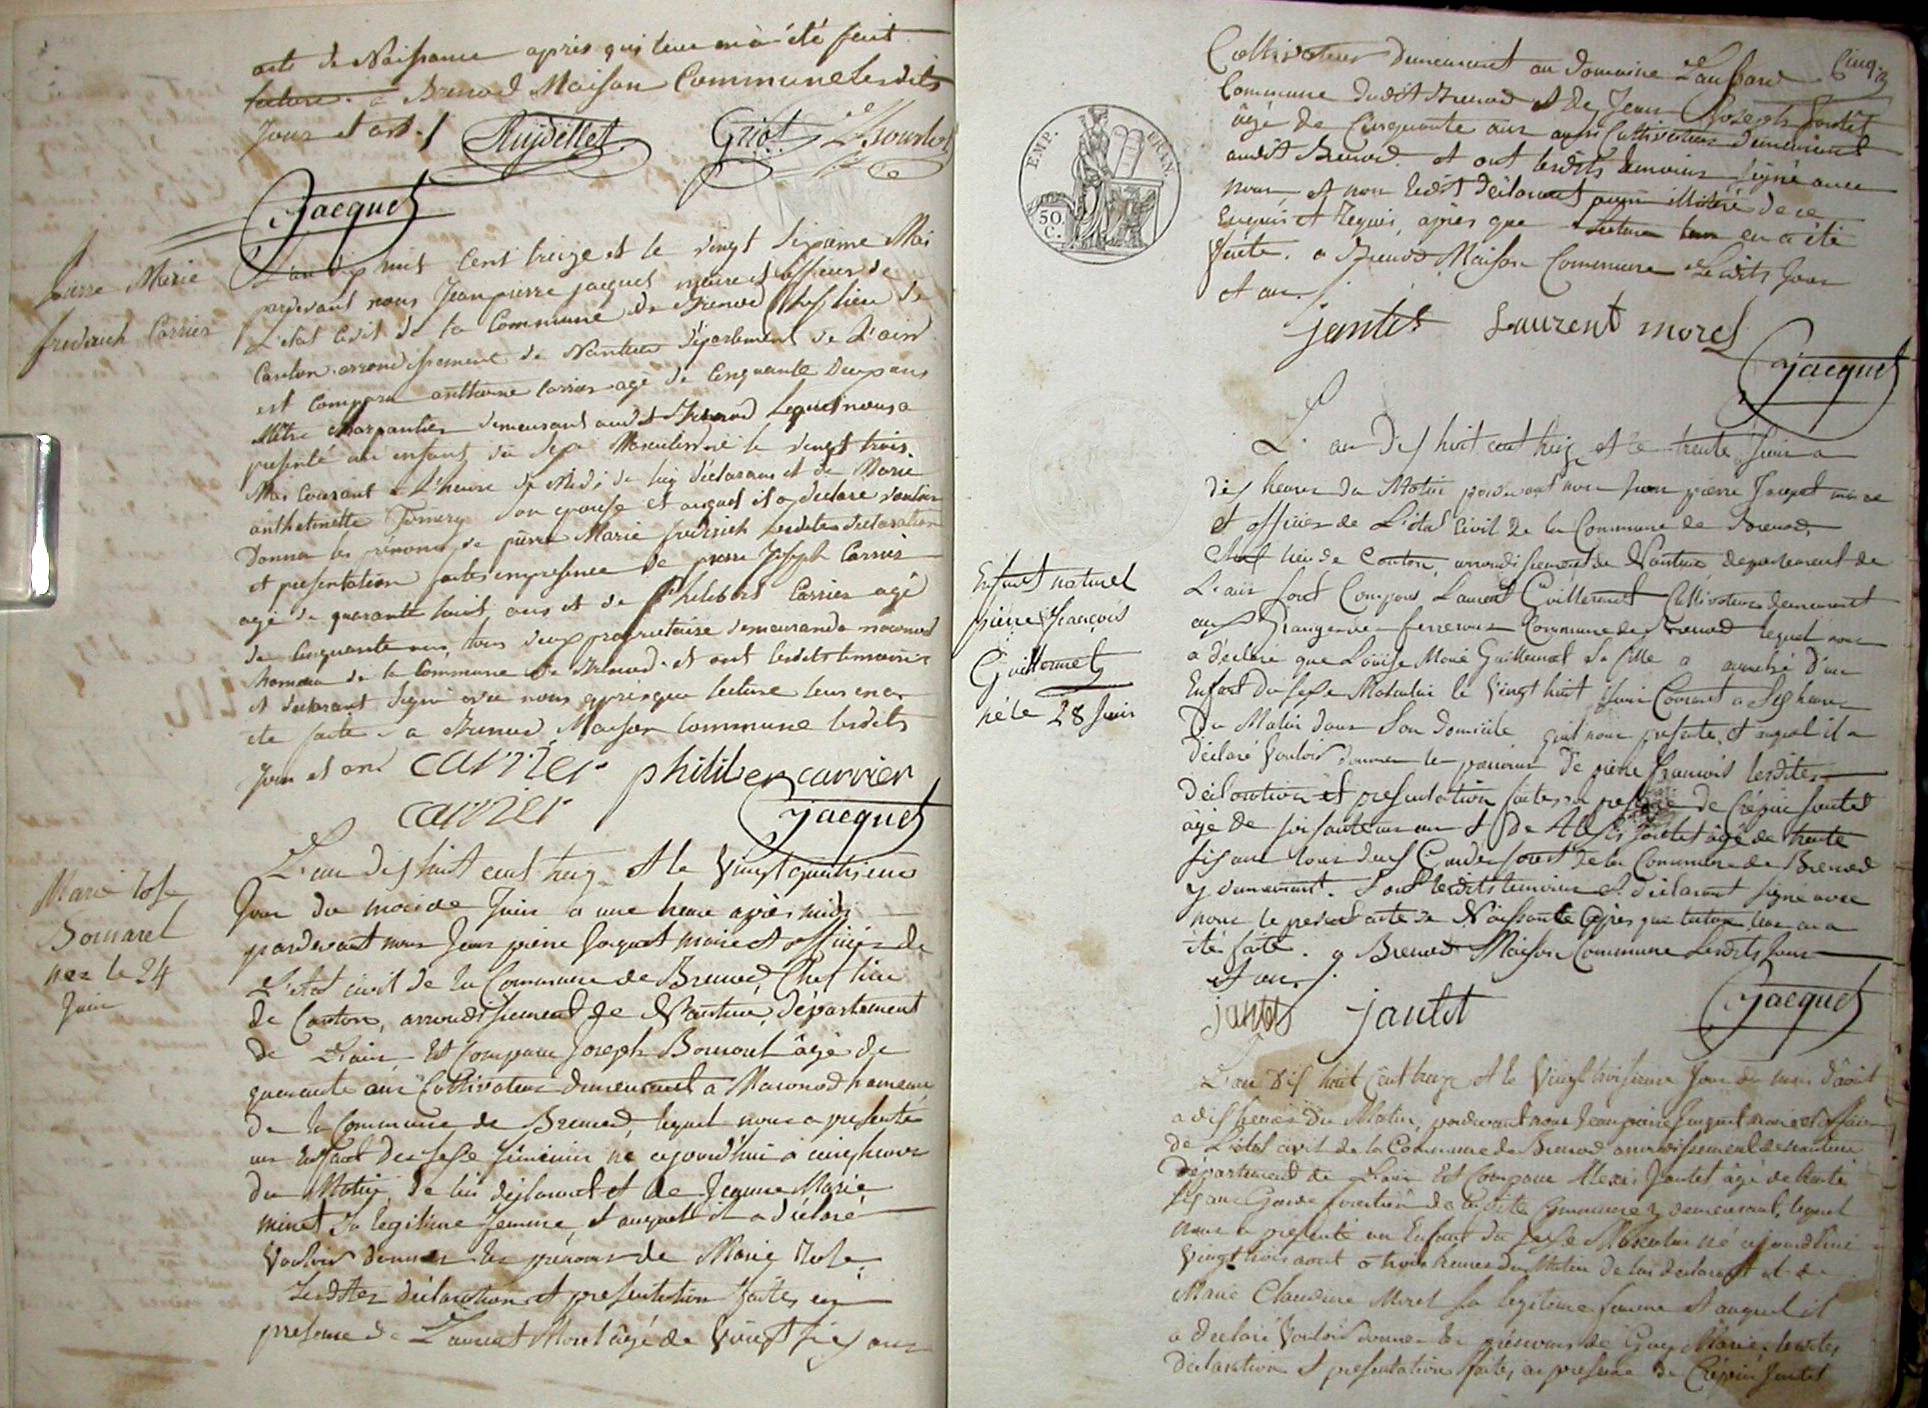 acte de Naissance après que lecture en a été faite
lecture. a Brenod Maison Commune Lesdits
Jour et an ./.
Ruydellet Griot
Jacquet
Pierre Marie
frederich Carrier
L'an dix huit Cent treize et le vingt sixieme Mai
pardevant nous Jean pierre jacquet maire et officier de
L'état Civil de la Commune de Brenod Chef lieu de
Canton arrondissement de Nantua département de L'ain
est Comparu anthoine Carrier agé de Cinquante Deux ans
Mêtre charpantier demeurant audit Brenod Lequel nous a
presenté un enfant du sexe Masculin né le vingt trois
Mai Courant a L'heure de Midi de luy déclarant et de Marie
anthoinette son epouse et auquel il a declaré vouloir
Donner les prénoms de pierre Marie frederich lesdites declaration
et presentation faites en presence de pierre Joseph Carrier
agé de quarante huit ans et de Philibert Carrier agé
de Cinquante ans, tous deux proprietaire demeurando
hameau de la Commune de Brenod et ont lesdits temoins
et declarant Signé avec nous apres que lecture leur en a
été faite a Brenod Maison Commune lesdits
Jour et an carrier philiber carrier
carrier Jacquet
Marie Rose
Bonnarel
née le 24
Juin
L'an dix huit cent treize Et le Vingt quatrieme
Jour du mois de Juin a une heure après midy
pardevant nous Jean pierre Jacquet maire et officier de
L'Etat civil de la Commune de Brenod, Chef lieu
de Canton, arrondissement de Nantua, Département
de L'ain Est Comparu Joseph agé de
quarante ans Cultivateur demeurant a Macconod hameau
de la Commune de Brenod, lequel nous a presenté
un Enfant du sexe féminin né aujourd'hui à cinq heures
du Matin, de lui déclarant et de Jeanne Marie
minet sa legitime femme, et auquel il a déclaré
Vouloir donner les prénoms de Marie Rose.
Lesdites déclaration et presentation faites en
presence de Laurent Morel âgé de Vingt six ans
Cinq.
Cultivateur demeurant au domaine
Commune dudit Brenod et de Jean Joseph Jantet
âgé de Cinquante ans aussi Cultivateur demeurant
audit Brenod. et ont lesdits temoins signé avec
nous et non ledit déclarant pour illitéré de ce
Enquis et Requis, après que Lecture leur en a été
faite. a Brenod Maison Commune Lesdits Jour
et an.
EMP. FRAN.
50 C.
jantet Laurent morel
Jacquet
Enfant naturel
pierre françois
Guillermet
né le 28 Juin
L'an Dix huit cent treize et le trente Juin a
dix heures du Matin pardevant nous Jean pierre Jacquet maire
et officier de L'état Civil de la Commune de Brenod,
Chef lieu de Canton, arrondissement de Nantua departement de
L'ain Sont Comparu Laurent Guillermet Cultivateur demeurant
aux Granges Commune de Brenod lequel nous
a déclaré que Louise Marie Guillermet Sa fille a accouché D'un
Enfant du sexe Masculin le Vingt huit Juin Courant a Six heures
Du Matin dans Son domicile qu'il nous presente, et auquel il a
déclaré Vouloir donner le prenoms De pierre françois lesdites
déclaration et presentation faites en presence de Crépin Jantet
âgé de soixante un ans et de Alexis Jantet âgé de trente
six ans tous deux Gardes forest de la Commune de Brenod
y demeurant. Et ont lesdits temoins et déclarant signé avec
nous le present acte de Naissance après que lecture leur en a
été faite. a Brenod Maison Commune Lesdits Jour
et an.
jantet jantet Jacquet
L'an Dix huit Cent treize et le Vingt troisieme Jour du mois d'août
a dix heures du Matin, pardevant nous Jean pierre Jacquet maire et officier
de L'état civil de la Commune de Brenod arrondissement de nantua
département de L'ain Est Comparu Alexis Jantet âgé de trente
six ans Garde forestier de ladite Commune y demeurant, lequel
nous a presenté un Enfant du sexe Masculin né aujourd'hui
Vingt trois aout a trois heures du Matin de lui declarant et de
Marie Claudine Morel Sa legitime femme et auquel il
a declaré Vouloir donner les prénoms de Guy Marie. lesdites
déclaration et presentation faites en presence de Crépin Jantet